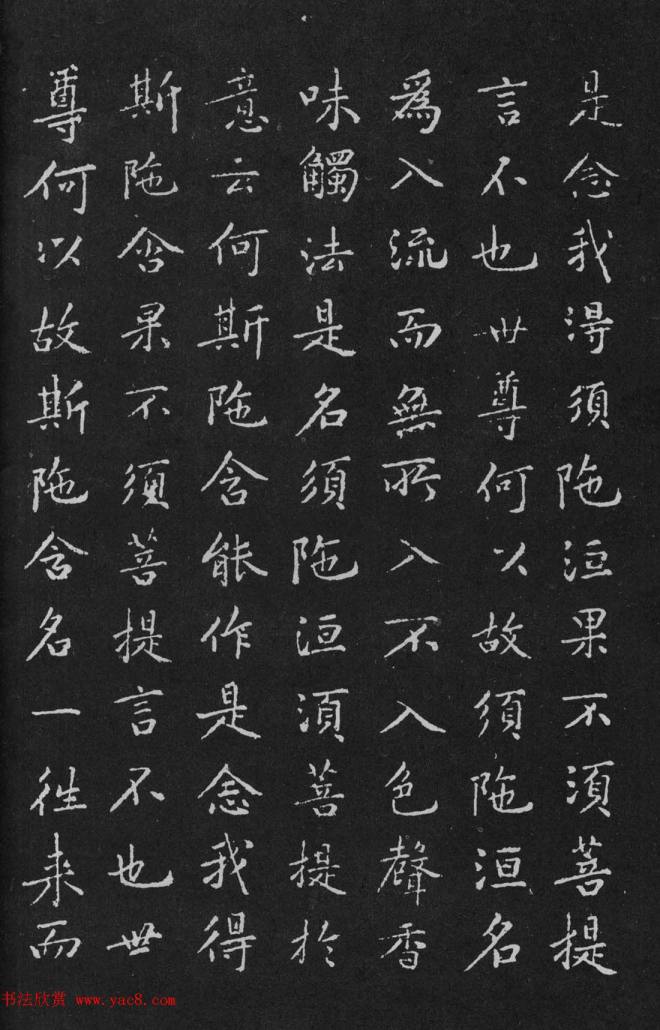 是念我得須陁洹果不須菩提
言不也世尊何以故須陁洹名
為入流而無所入不入色聲香
味觸法是名須陁洹須菩提於
意云何斯陁含能作是念我得
斯陁含果不須菩提言不也世
尊何以故斯陁含名一往来而
书法欣赏 www.yac8.com